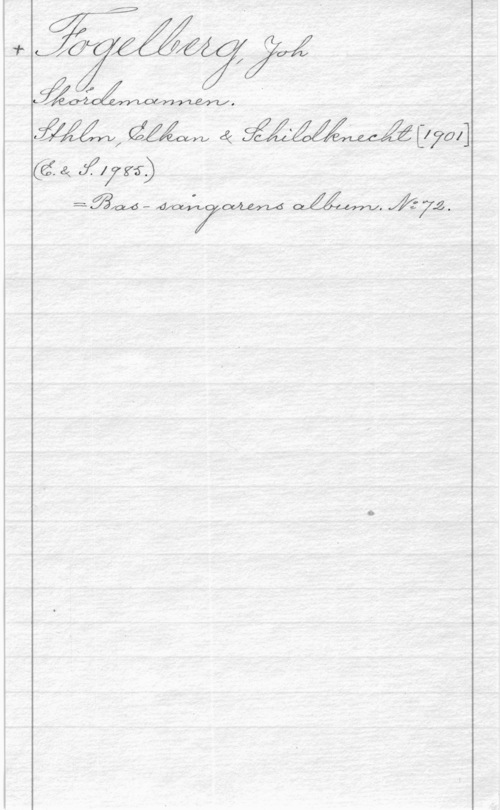 + Fogelberg, Joh
Skördemannen.
Sthlm, Elkan & Schildknecht [1901]
(E. & S. 1985.)
= Bas-sångarens album. No 72.